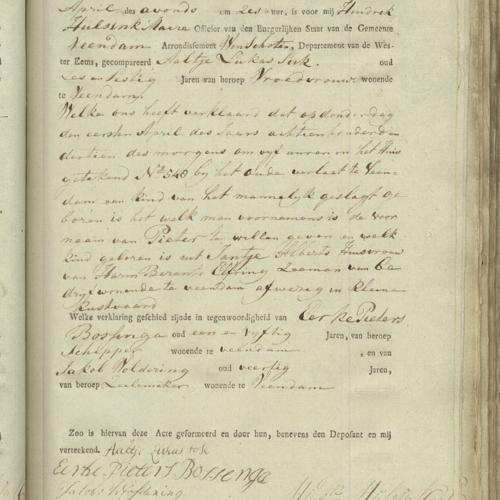 April des avonds om zes uur, is voor mij Hindrik
Hulsink Maire Officier van den Burgerlijken Staat van de Gemeente
Veendam Arrondissement Winschoten, Departement van de Wes-
ter Eems, gecompareert Aaltje Lukas Tuk. oud
zes en sestig Jaren van beroep Vroedvrouw wonende
te Veendam.
Welke ons heeft verklaard dat op donderdag
den eersten April des Jaars achtienhonderd en
dertien des morgens om vyf uuren in het Huis
getekend No. 548 by het oude verlaat te Veen-
dam een kind van het mannelyk geslagt ge
boren is het welk men voornemens is de voor
naam van Pieter te willen geven en welk
kind geboren is uit Jantje Alberts Huisvrouw
van Harm Berents Elfring Zeeman van be
dryf wonende te veendam afwezig in kleine
kustvaard
Welke verklaring geschied zijnde in tegenwoordigheid van Eerke Pieters
Bossinga oud een en vyftig Jaren, van beroep
Schipper wonende te veendam , en van
Jakob Woldering oud veertig Jaren,
van beroep wonende te Veendam
Zoo is hiervan deze Acte geformeerd en door hun, benevens den Deposant en mij
verteekend. Aaltje Lukas tok
Eerke Pieters Bossenga
Jacob